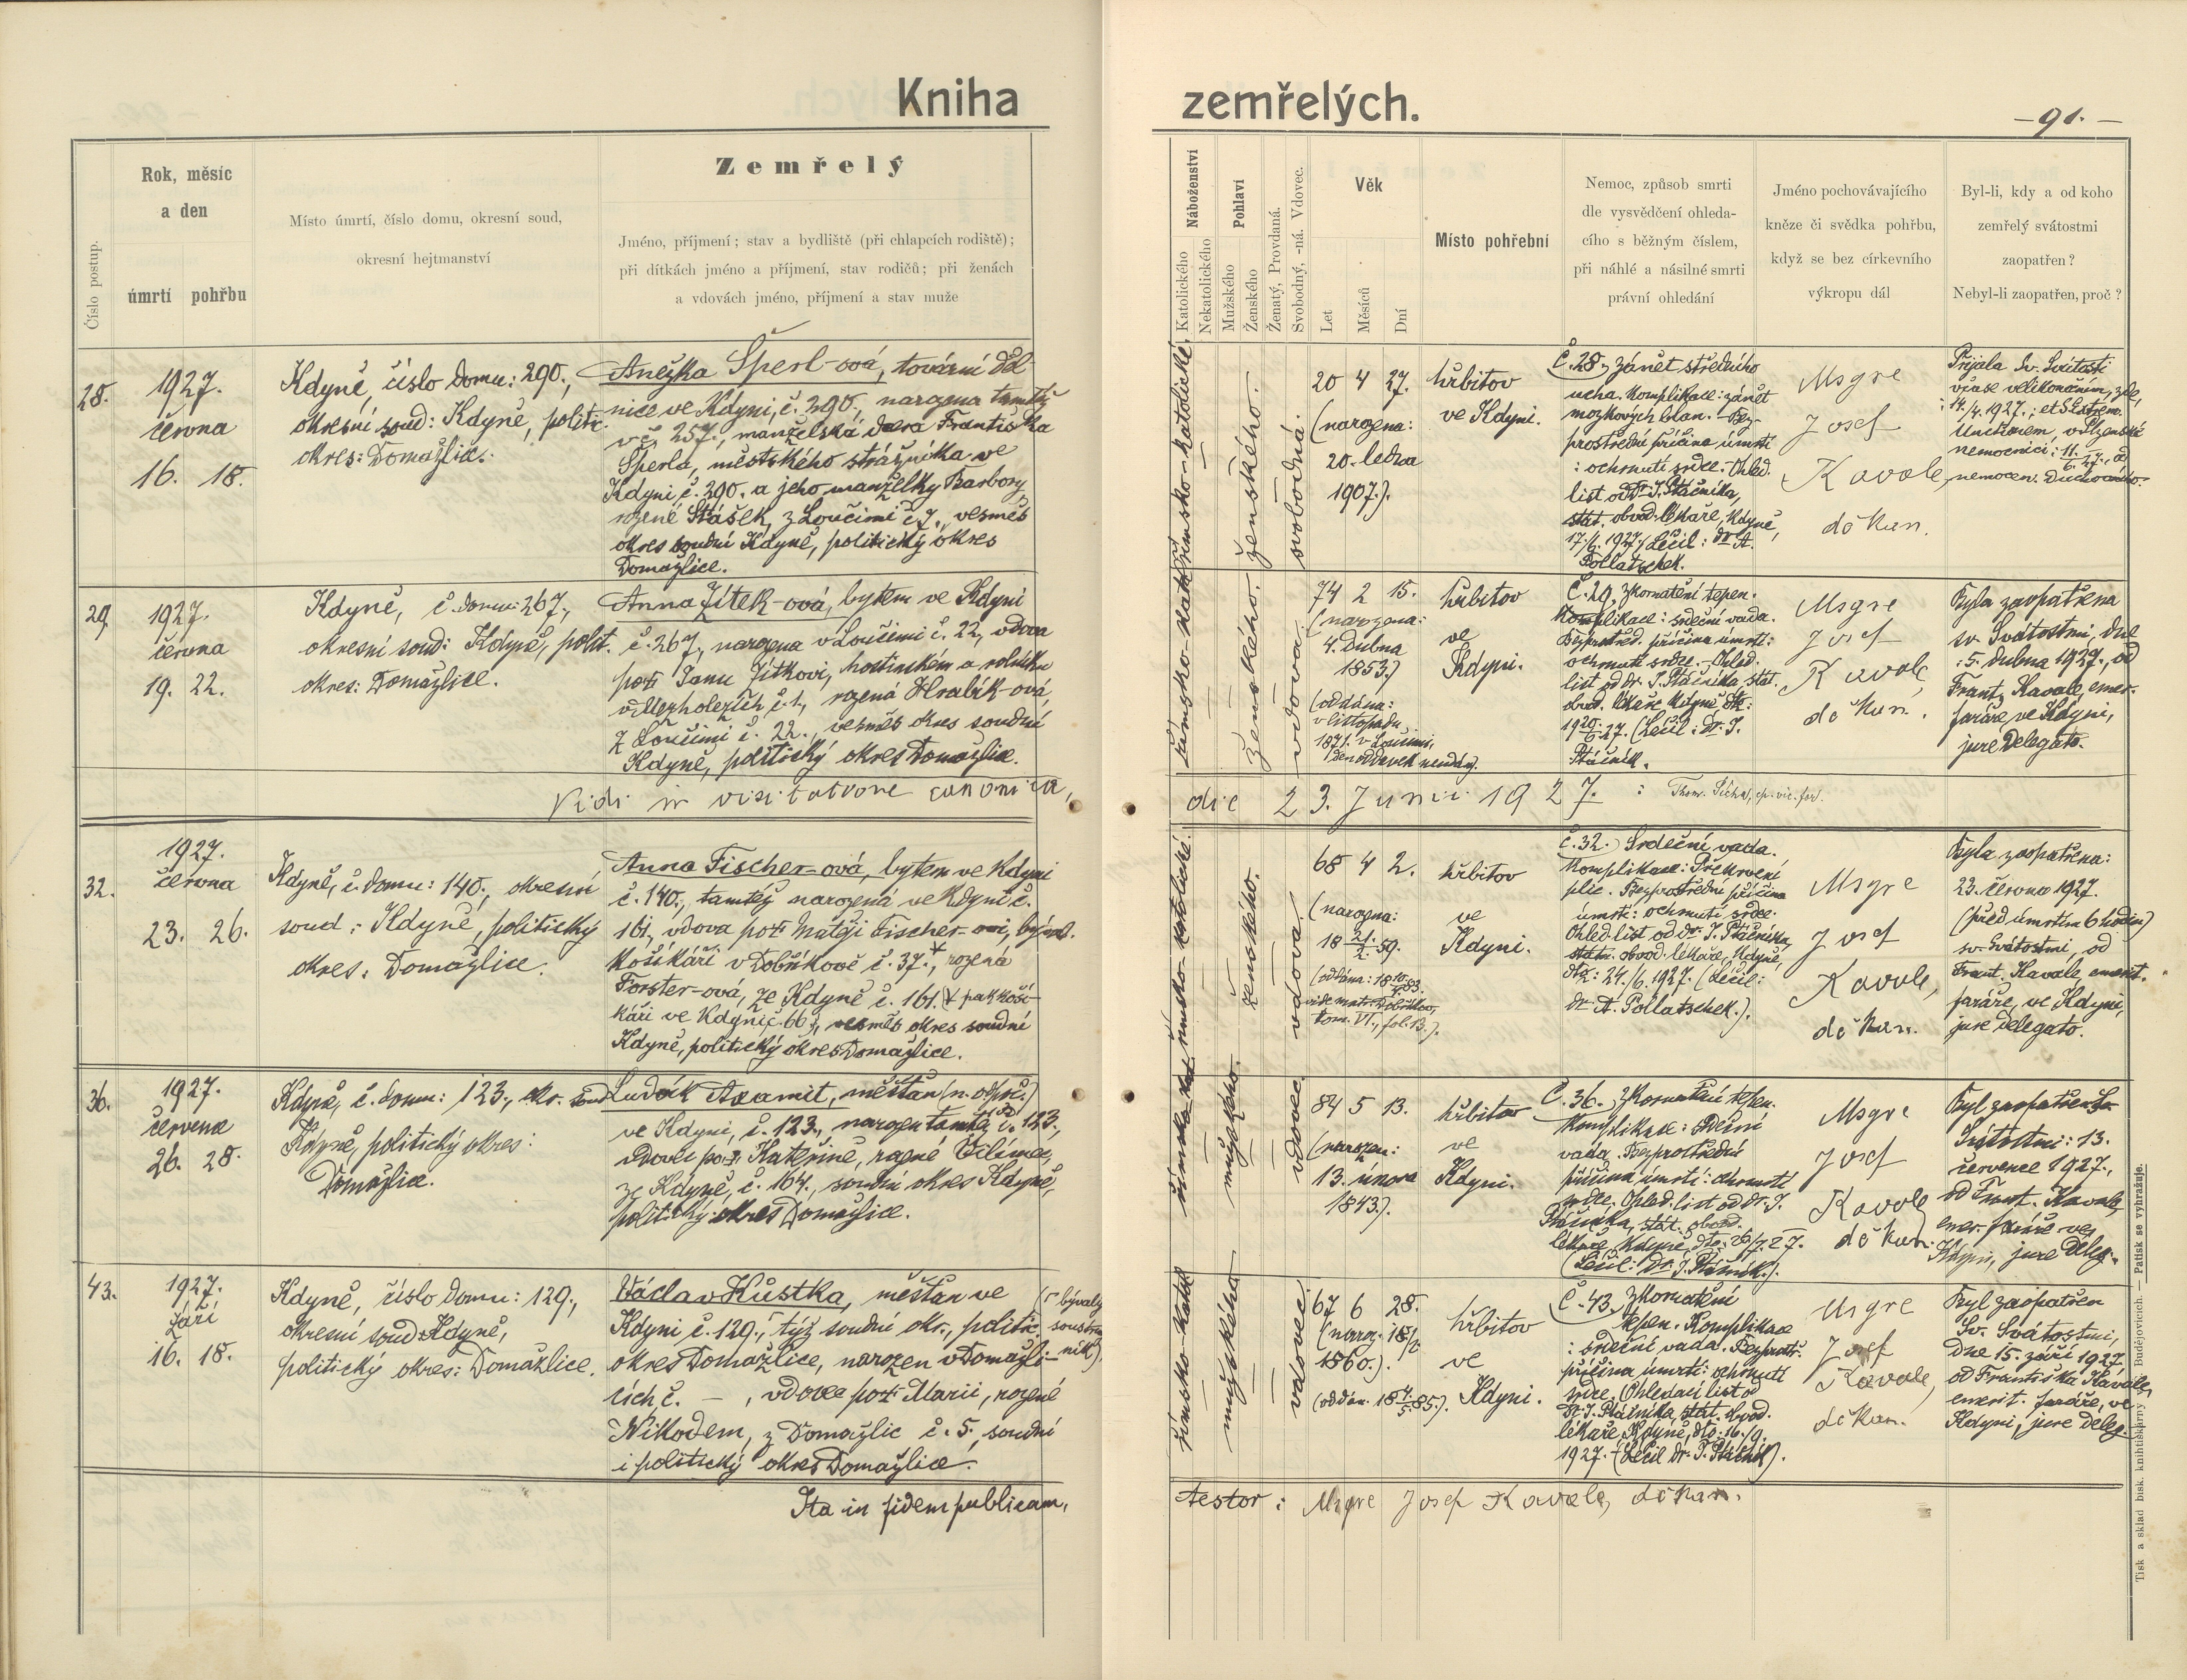 Kniha
zemřelých.
- 91. -
Číslo postup.
Rok, měsíc
a den
úmrtí pohřbu
Místo úmrtí, číslo domu, okresní soud,
okresní hejtmanství
Zemřelý
Jméno, příjmení; stav a bydliště (při chlapcích rodiště);
při dítkách jméno a příjmení, stav rodičů; při ženách
a vdovách jméno, příjmení a stav muže
Náboženství
Katolického
Nekatolického
Pohlaví
Mužského
Ženského
Ženatý, Provdaná.
Svobodný, -ná. Vdovec.
Věk
Let
Měsíců
Dní
Místo pohřební
Nemoc, způsob smrti
dle vysvědčení ohleda-
cího s běžným číslem,
při náhlé a násilné smrti
právní ohledání
Jméno pochovávajícího
kněze či svědka pohřbu,
když se bez církevního
výkropu dál
Byl-li, kdy a od koho
zemřelý svátostmi
zaopatřen?
Nebyl-li zaopatřen, proč?
28.
1927.
června
16. 18.
Kdyně, číslo domu: 290.,
okresní soud: Kdyně, politic.
okres: Domažlice.
Anežka Šperl-ová, tovární děl-
nice ve Kdyni, č. 290., narozena tamtéž
v č. 257., manželská dcera Františka
Šperla, městského strážníka ve
Kdyni č. 290. a jeho manželky Barbory
rozené Stašek, z Loučimi č. 7., vesměs
okres soudní Kdyně, politický okres
Domažlice.
římsko-katolické.
ženského.
svobodná.
20 4 27.
(narozena:
20. ledna
1907.).
hřbitov
ve Kdyni.
Č. 28. Zánět středního
ucha. Komplikace: zánět
mozkových blan. Bez-
prostřední příčina úmrtí
: ochrnutí srdce. Ohled.
list od Dr. J. Ptáčníka,
stát. obvod. lékaře, Kdyně,
17/6. 1927. (Léčil: dr. A.
Pollatschek.
Msgre
Josef
Kavale,
děkan.
Přijala sv. Svátosti
v čase velikonočním, zde,
14./4. 1927.; et S. Extrem.
Unctionem v Plzenské
nemocnici: 11./6. 27., od
nemocen. duchovního.
29.
1927.
června
19. 22.
Kdyně, č. domu: 267.,
okresní soud: Kdyně, polit.
okres: Domažlice.
Anna Jítek-ová, bytem ve Kdyni
č. 267., narozena v Loučimi č. 22., vdova
po † Janu Jítkovi, hostinském a rolníku
v Mezholezích č. 1, rozená Hrabík-ová,
z Loučimi č. 22., vesměs okres soudní
Kdyně, politický okres Domažlice.
ženského.
vdova.
74 2 15.
(narozena:
4. dubna
1853.)
(oddána:
v listopadu
1871. v Loučimi,
den oddavek neudán).
hřbitov
ve
Kdyni.
Č. 29. Zkornatění tepen.
Komplikace: srdeční vada.
Bezprostřed. příčina úmrtí:
ochrnutí srdce. Ohled.
list od dr. J. Ptáčníka, stát.
obvod. lékaře Kdyně, dto:
19 20./6. 27. (Léčil: dr. J.
Ptáčník.
Msgre
Josef
Kavale,
děkan.
Byla zaopatřena
sv. Svátostmi, dne
: 5. dubna 1927., od
Frant. Kavale, emer.
faráře ve Kdyni,
jure delegato.
Vidi in visitatione canonica,
die 23. Junii 1927. :
32.
1927.
června
23. 26.
Kdyně, č. domu: 140., okresní
soud: Kdyně, politický
okres: Domažlice.
Anna Fischer-ová, bytem ve Kdyni
č. 140., tamtéž narozená ve Kdyni č.
161., vdova po † Matěji Fischer-ovi, býval.
košíkáři v Dobříkově č. 37.*, rozená
Forster-ová, ze Kdyně č. 161. (* pak koší-
káři ve Kdyni č. 66.), vesměs okres soudní
Kdyně, politický okres Domažlice.
římsko-katolické.
ženského.
vdova.
68 4 2.
(narozena:
18 21./2. 59.
(oddána: 18 10/4. 83.
vide matr. Dobříkov,
tom. VI., fol. 13.).
hřbitov
ve
Kdyni.
Č. 32. Srdeční vada.
Komplikace: Překrvení
plic. Bezprostřední příčina
úmrtí: ochrnutí srdce.
Ohled. list od dr. J. Ptáčníka,
státn. obvod. lékaře, Kdyně,
dto: 24./6. 1927. (Léčil:
dr. A. Pollatschek.).
Msgre
Josef
Kavale,
děkan.
Byla zaopatřena:
23. června 1927.
(před úmrtím 6 hodin)
sv. Svátostmi, od
Frant. Kavale, emerit.
faráře, ve Kdyni,
jure delegato.
36.
1927.
července
26. 28.
Kdyně, č. domu: 123., okr. soud
Kdyně, politický okres:
Domažlice.
Ludvík Axamit, měšťan
ve Kdyni, č. 123., narozen tamtéž č. 123.,
vdovec po † Kateřině, rozené
ze Kdyně, č. 164., soudní okres Kdyně,
politický okres Domažlice.
mužského.
vdovec.
84 5 13.
(narozen:
13. února
1843.).
hřbitov
ve
Kdyni.
Č. 36. Zkornatění tepen.
Komplikace: srdeční
vada. Bezprostřední
příčina úmrtí: ochrnutí
srdce. Ohled. list od dr. J.
Ptáčníka, stát. obvod.
lékaře, Kdyně, dto: 26/7. 27.
(Léčil: Dr. J. Ptáčník.).
Msgre
Josef
Kavale
děkan.
Byl zaopatřen Sv.
Svátostmi: 13.
července 1927.,
od Frant. Kavale,
emer. faráře ve
Kdyni, jure deleg.
43.
1927.
září
16. 18.
Kdyně, číslo domu: 129.,
okresní soud: Kdyně,
politický okres: Domažlice.
Václav Kůstka, měšťan ve (bývalý
Kdyni č. 129., týž soudní okr., politic. soustruž-
okres Domažlice, narozen v Domažli- ník).
cích, č. —, vdovec po † Marii, rozené
Nikodem, z Domažlic č. 5., soudní
i politický okres Domažlice.
mužského
vdovec.
67 6 28.
(naroz. 18/2
1860.).
(oddán. 18 4/5. 85.).
hřbitov
ve
Kdyni.
Č. 43. Zkornatění
tepen. Komplikace
: srdeční vada. Bezprostř.
příčina úmrtí: ochrnutí
srdce. (Ohledací list od
Dr. J. Ptáčníka, stát. obvod.
lékaře, Kdyně, dto: 16./9.
1927. (Léčil dr. J. Ptáčník).
Msgre
Josef
Kavale,
děkan.
Byl zaopatřen
Sv. Svátostmi,
dne 15. září 1927,
od Františka Kavale,
emerit. faráře, ve
Kdyni, jure deleg.
Ita in fidem publicam,
testor: Msgre Josef Kavale, děkan.
Tisk a sklad bisk. knihtiskárny v Budějovicích. — Patisk se vyhražuje.